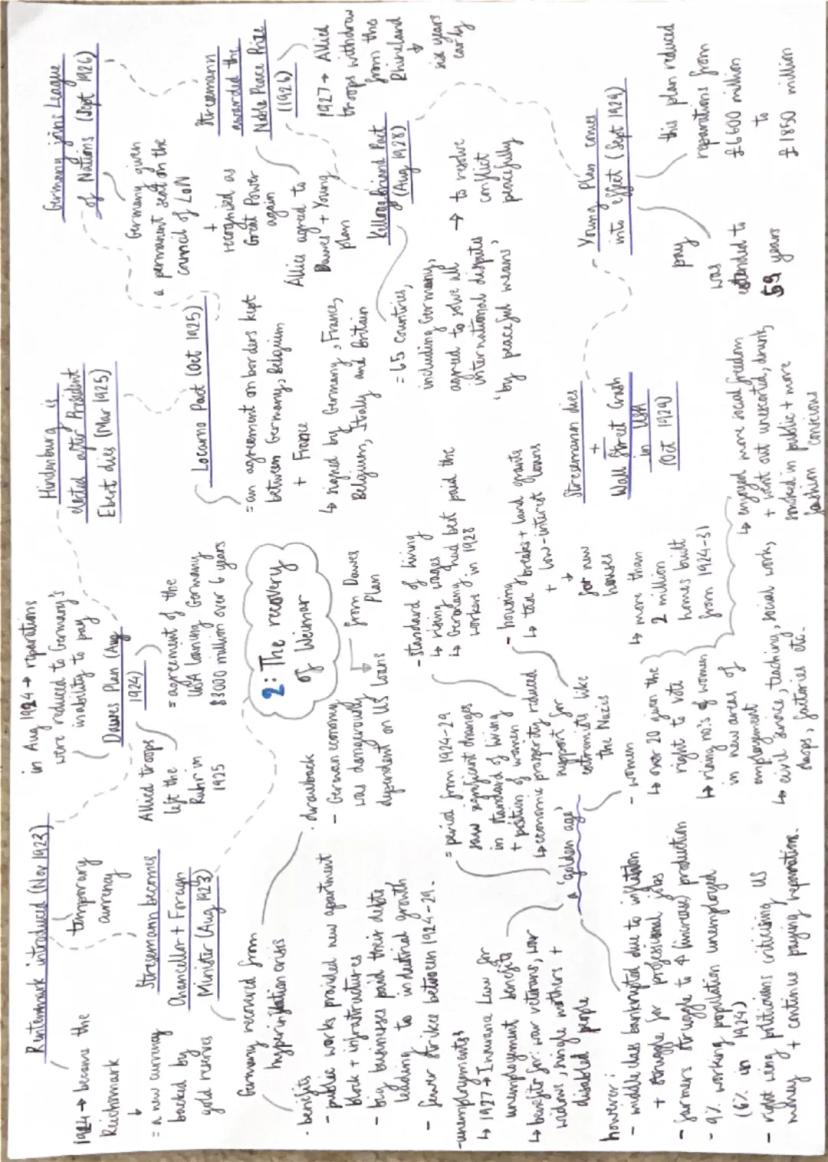 2: The recovery
of Weimar
Stresemann becomes
Chancellor + Foreign
Minister (Aug 1923)
Germany recovered from
hyperinflation crisis
· benefits
- public works provided new apartment
block + infrastructures
- big businesses paid their debts
leading to industrial growth
- fewer strikes between 1924-29.
· drawback
- German economy
was dangerously
dependent on US loans
from Dawes
Plan
Rentenmark introduced (Nov 1923)
temporary
currency
1924 → became the
Reichsmark
↓
= a new currency
backed by
gold reserves
Dawes Plan (Aug
1924)
in Aug 1924 → reparations
were reduced to Germany's
inability to pay
Allied troops
left the
Ruhr in
1925
= agreement of the
USA loaning Germany
$3000 million over 6 years
Hindenburg is
elected after President
Ebert dies (Mar 1925)
Locarno Pact (Oct 1925)
= an agreement on borders kept
between Germany, Belgium
+ France
↳ signed by Germany, France,
Belgium, Italy and Britain
Germany joins League
of Nations (Sept 1926)
Germany given
a permanent seat on the
council of LoN
+
recognised as
Great Power
again
Stresemann
awarded the
Noble Peace Prize
(1926)
Allies agreed to
Dawes + Young
plan
1927 → Allied
troops withdraw
from the
Rhineland
↓
six years
early
Kellogg Briand Pact
(Aug 1928)
= 65 countries,
including Germany,
agreed to solve all
international disputes
'by peaceful means',
→ to resolve
conflict
peacefully
Young Plan comes
into effect (Sept 1929)
pay
was
extended to
59 years
this plan reduced
reparations from
£6600 million
to
£1850 million
Stresemann dies
+
Wall Street Crash
in USA
(Oct 1929)
a 'golden age'
= period from 1924-29
saw significant changes
in standard of living
+ position of women
↳ economic prosperity reduced
support for
extremists like
the Nazis
- standard of living
↳ rising wages
↳ Germany had best paid the
workers in 1928
- housing
↳ tax breaks + land grants
+ low-interest loans
↓
for new
houses
↳ more than
2 million
homes built
from 1924-31
- women
↳ over 20 given the
right to vote
↳ rising no's of women
in new areas of
employment
↳ civil service, teaching, social work,
shops, factories etc.
↳ enjoyed more social freedom
+ went out unescorted, drunk,
smoked in public + more
fashion conscious
- unemployments
↳ 1927 → Insurance Law for
unemployment benefits
↳ benefits for: war veterans, war
widows, single mothers +
disabled people
however:
- middle class bankrupted due to inflation
+ struggle for professional jobs
- farmers struggle to ↑ (increase) production
- 9% working population unemployed
(6% in 1924)
- right wing politicians criticising US
money + continue paying reparations.